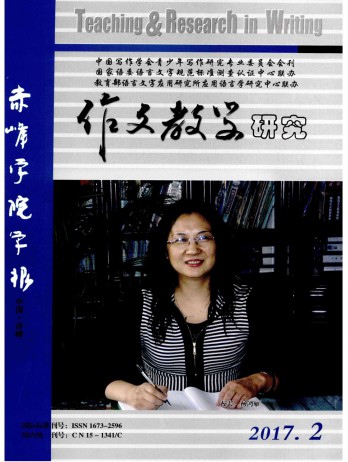 Teaching & Research in Writing
中国写作学会青少年写作研究专业委员会会刊
国家语委语言文字规范标准测查认证中心联办
教育部语言文字应用研究所应用语言学研究中心联办
作文教学研究
赤峰学院学报
刊号：ISSN 1673-2596
刊号：CN 15-1341/C
2017. 2